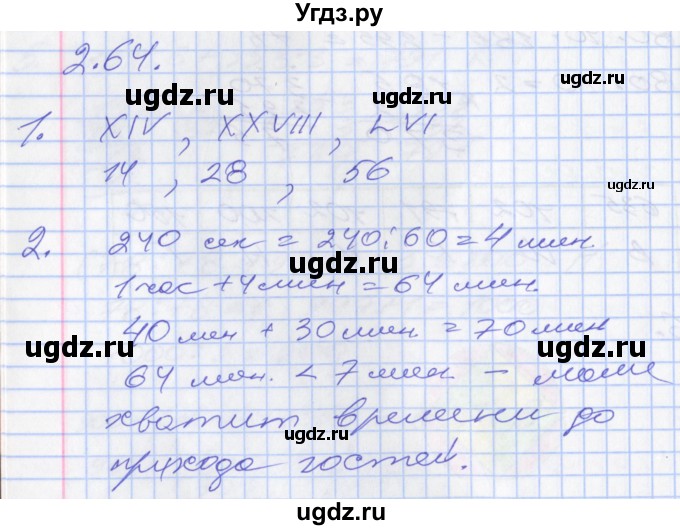 Угдз.ру
2.64.
ugdz.ru ugdz.ru
1. XIV, XXVIII, LVI
14, 28, 56
ugdz.ru
2. 240 сек = 240:60=4 мин.
ugdz.ru
1 час + 4 мин = 64 мин.
40 мин + 30 мин = 70 мин
ugdz.ru ugdz.ru
64 мин. < 7 мин - маме
хватит времени до
ugdz.ru
прихода гостей.
ugdz.ru